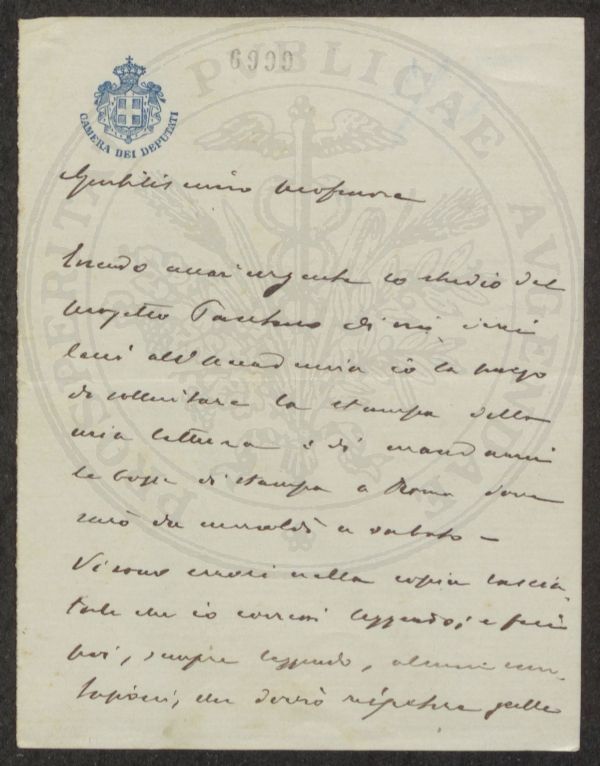 6999
CAMERA DEI DEPUTATI
PROSPERITATI PUBLICAE AUGENDAE
Gentilissimo Professore
Essendo assai urgente lo studio del
progetto Pantano di cui
lessi all'Accademia io la prego
di sollecitare la stampa della
mia lettura e di mandarmi
le bozze di stampa a Roma dove
sarò da mercoldì a sabato —
Vi sono errori nella copia lascia-
tale che io corressi leggendo; e feci
poi, sempre leggendo, alcune
che dovrò ripetere sulle